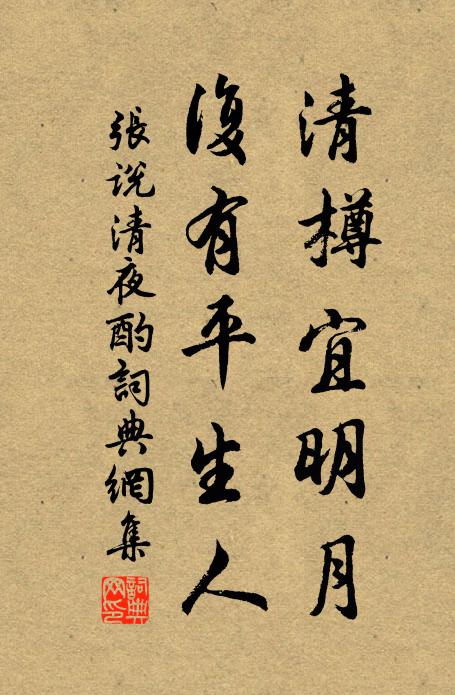 清樽宜明月
復有平生人
張說清夜酌詞典網集
詞典
网印